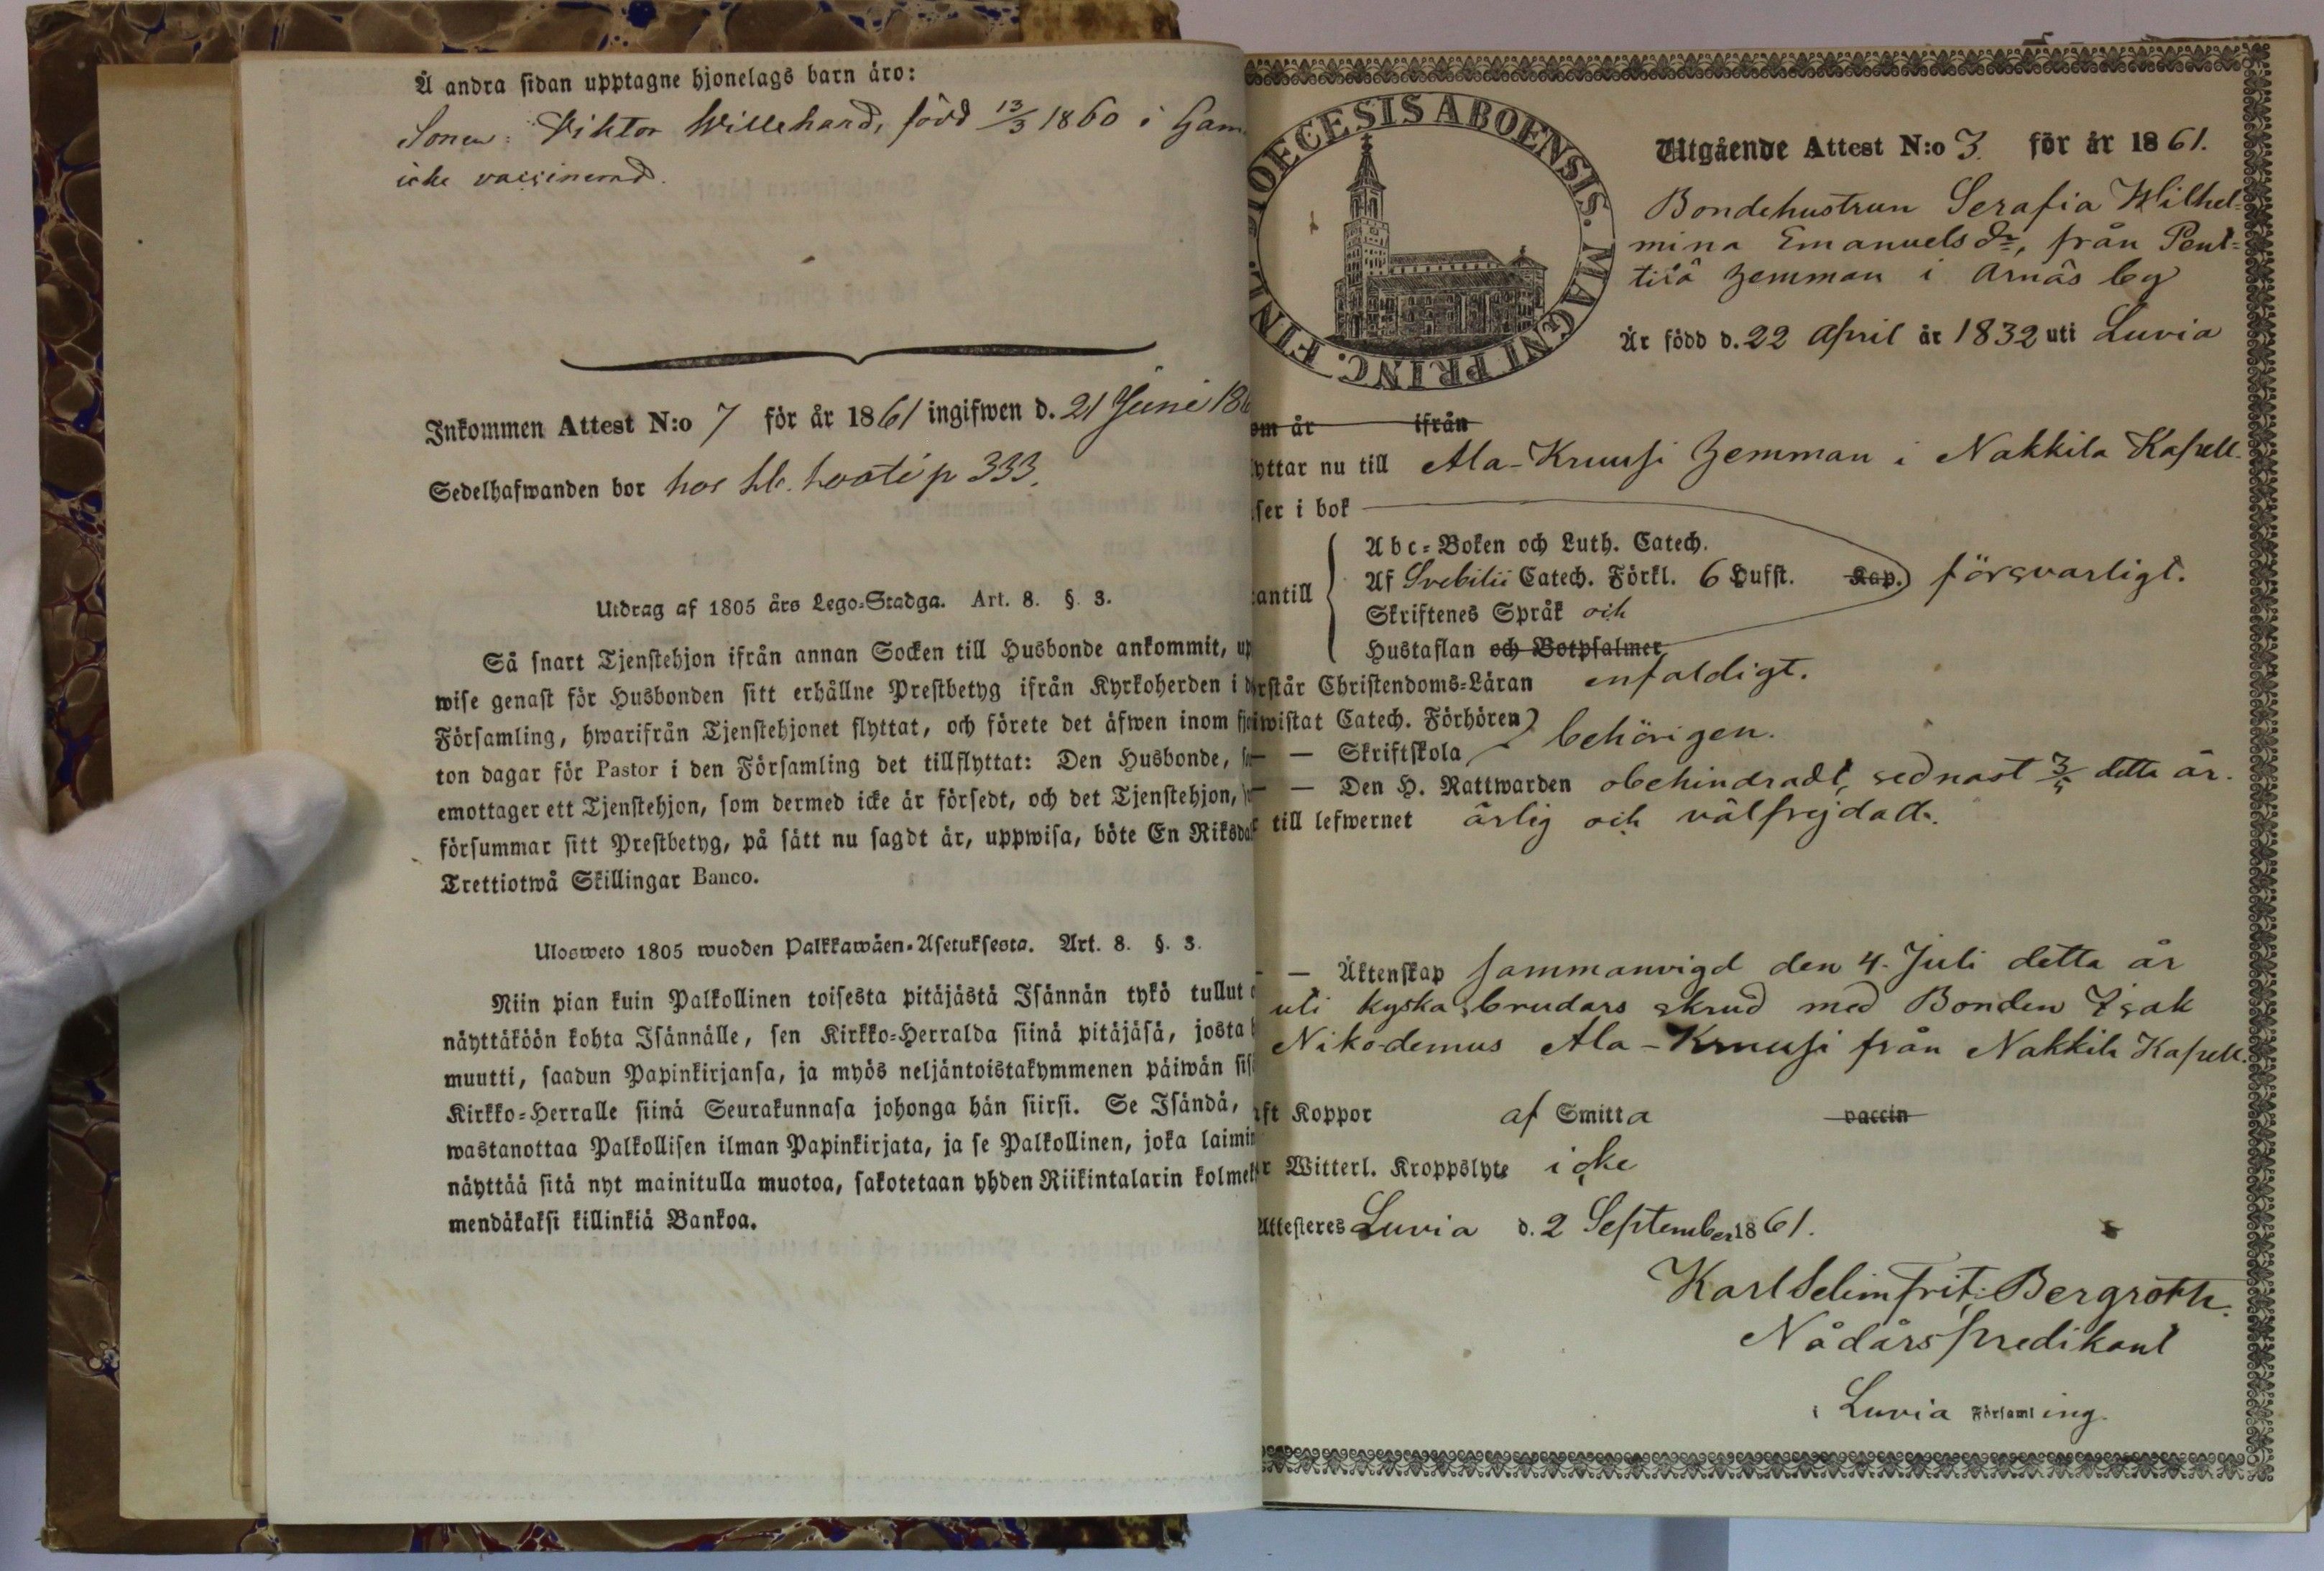 Å andra sidan upptagne hjonelags barn äro:
Sonen: Viktor Willehard, född 13/3 1860 i Gam
icke vaccinerad.
Inkommen Attest N:o 7 för år 1861 ingifwen d. 21 Juni 186
Sedelhafwanden bor hos
p 333.
Utdrag af 1805 års Lego-Stadga. Art. 8. §. 3.
Så snart Tjenstehjon ifrån annan Socken till Husbonde ankommit, up
wise genast för Husbonden sitt erhållne Prestbetyg ifrån Kyrkoherden i d
Församling, hwarifrån Tjenstehjonet flyttat, och förete det äfwen inom fjor
ton dagar för Pastor i den Församling det tillflyttat: Den Husbonde, so
emottager ett Tjenstehjon, som dermed icke är försedt, och det Tjenstehjon, so
försummar sitt Prestbetyg, på sätt nu sagdt är, uppwisa, böte En Riksdal
Trettiotwå Skillingar Banco.
Ulosweto 1805 wuoden Palkkawäen-Asetuksesta. Art. 8. §. 3.
Niin pian kuin Palkollinen toisesta pitäjästä Isännän tykö tullut o
näyttäköön kohta Isännälle, sen Kirkko-Herralda siinä pitäjäsä, josta h
muutti, saadun Papinkirjansa, ja myös neljäntoistakymmenen päiwän sis
Kirkko-Herralle siinä Seurakunnasa johonga hän siirsi. Se Isändä,
wastanottaa Palkollisen ilman Papinkirjata, ja se Palkollinen, joka laimin
näyttää sitä nyt mainitulla muotoa, sakotetaan yhden Riikintalarin kolmek
mendäkaksi killinkiä Bankoa.
DIOECESIS ABOENSIS. MAGNI PRINC. FINL.
Utgående Attest N:o 3. för år 1861.
Bondehustrun Serafia Wilhel-
mina Emanuelsdr, från Pent-
tilä hemman i Arnäs by
Är född d. 22 April år 1832 uti Luvia
om år ifrån
yttar nu till Ala-Kruusi hemman i Nakkila Kapell.
ser i bok
Abc-Boken och Luth. Catech.
antill Af Svebilii Catech. Förkl. 6 Hufst. Kap. försvarligt.
Skriftenes Språk och
Hustaflan och Botpsalmer
rstår Christendoms-Läran enfaldigt.
iwistat Catech. Förhören
— — Skriftskola behörigen.
— — Den H. Nattwarden obehindradt, sednast 3/5 detta år.
till lefwernet ärlig och välfrejdad.
— — Äktenskap sammanvigd den 4. Juli detta år
uti kyska brudars skrud med Bonden Isak
Nikodemus Ala-Kruusi från Nakkila Kapell.
ft Koppor af Smitta vaccin
r Witterl. Kroppslyte icke
Attesteres Luvia d. 2 September 1861.
Karl Selim Frit: Bergroth.
Nådårspredikant
i Luvia Församling.